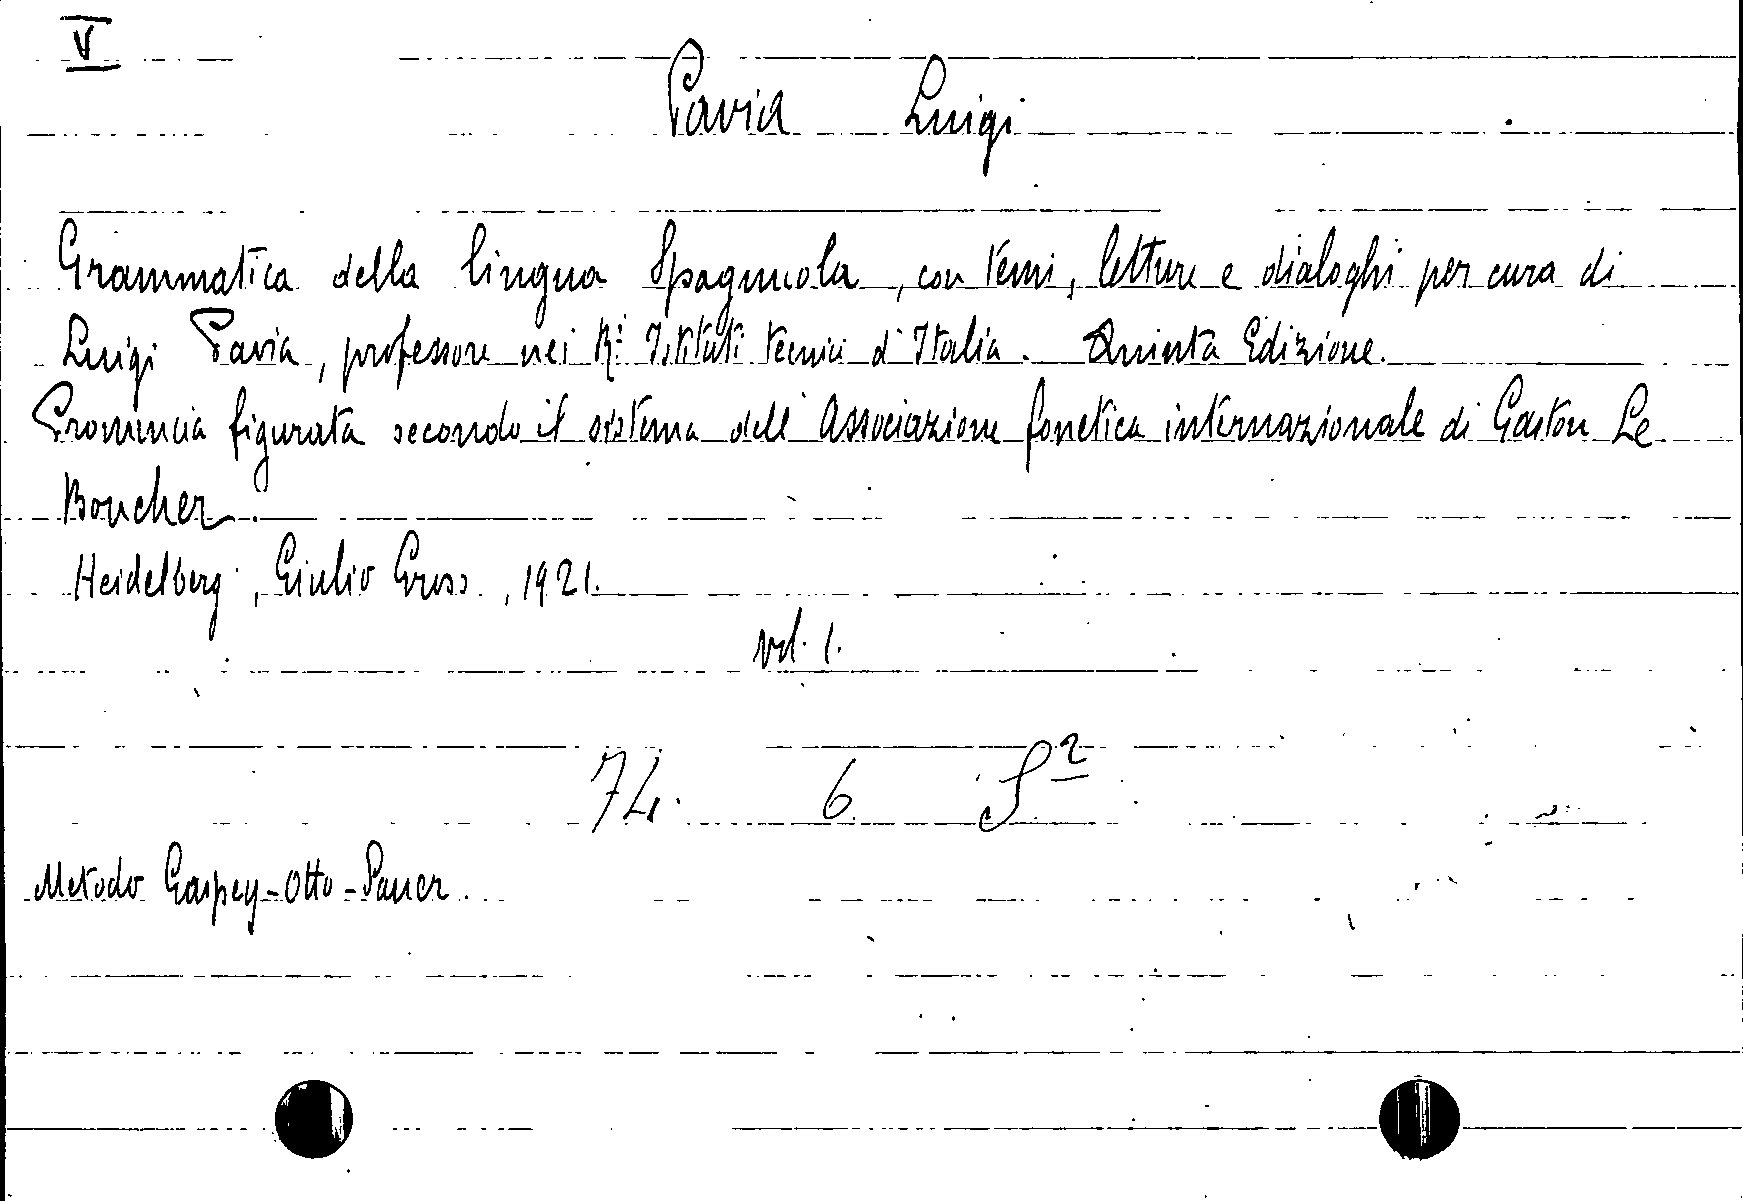 V
Pavia Luigi
Grammatica della lingua Spagnuola, con temi, letture e dialoghi per cura di
Luigi Pavia, professore nei Ri Istituti tecnici d'Italia. Quinta Edizione.
Pronuncia figurata secondo il sistema dell'Associazione fonetica internazionale di Gaston Le
Boucher.
Heidelberg, Giulio Gross, 1921.
vol. 1.
74. 6. S²
Metodo Gaspey-Otto-Sauer.